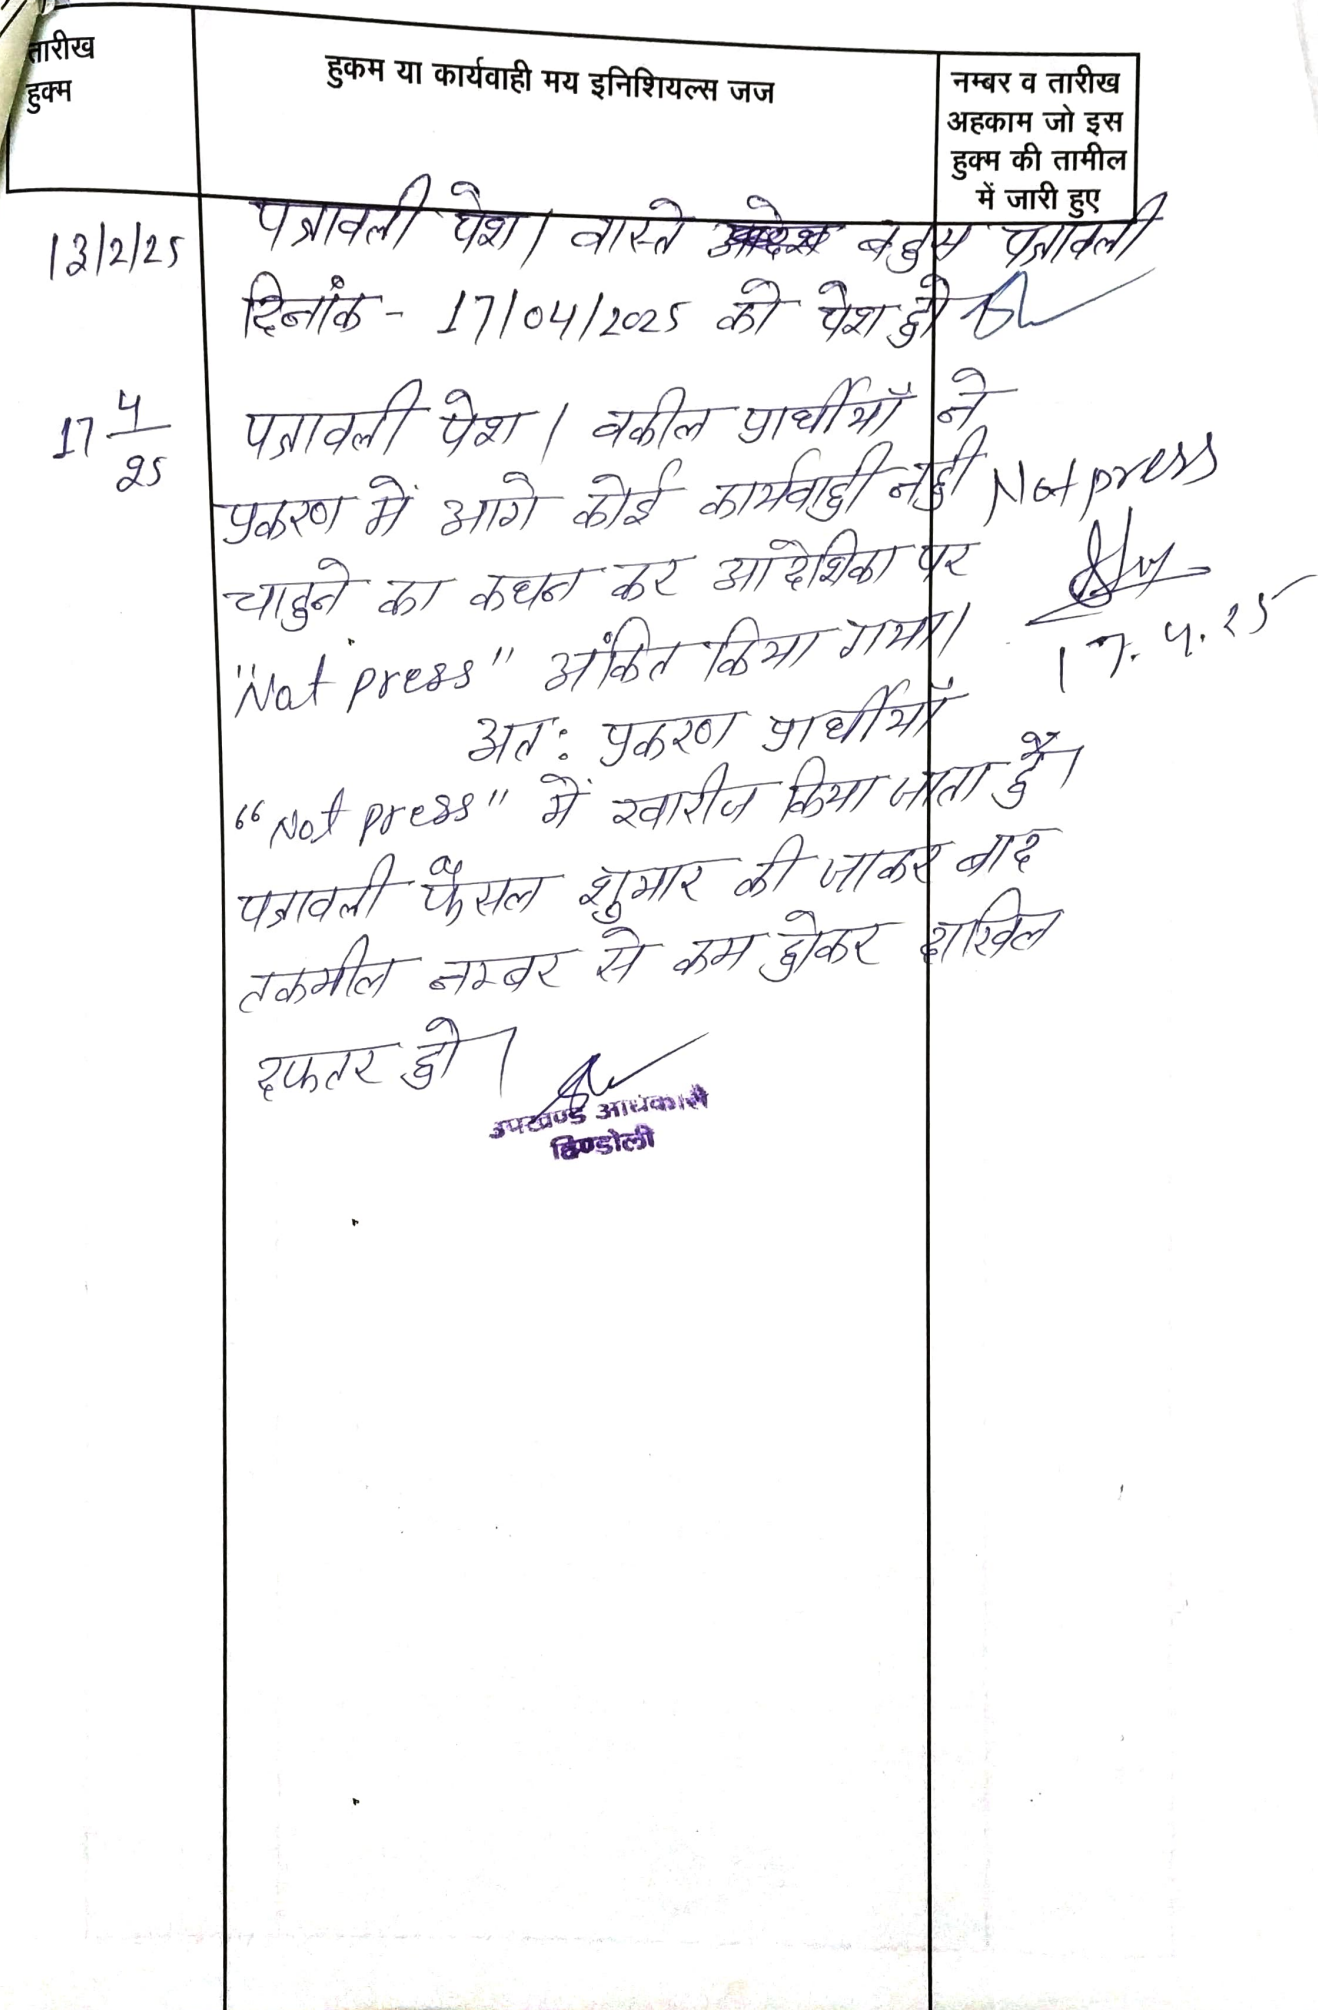 तारीख
हुक्म
हुकम या कार्यवाही मय इनिशियल्स जज
नम्बर व तारीख
अहकाम जो इस
हुक्म की तामील
में जारी हुए
13/2/25
पत्रावली पेश। वास्ते बहस पत्रावली
दिनांक - 17/04/2025 को पेश हो
17 4/25
पत्रावली पेश। वकील प्रार्थीयाँ ने
प्रकरण में आगे कोई कार्यवाही नही
चाहने का कथन कर आदेशिका पर
"Not press" अंकित किया गया।
Not press
17.4.25
अत: प्रकरण प्रार्थीयाँ
"Not press" में खारीज किया जाता है।
पत्रावली फैसल शुमार की जाकर बाद
तकमील नम्बर से कम होकर दाखिल
दफतर हो।
उपखण्ड अधिकारी
हिण्डोली